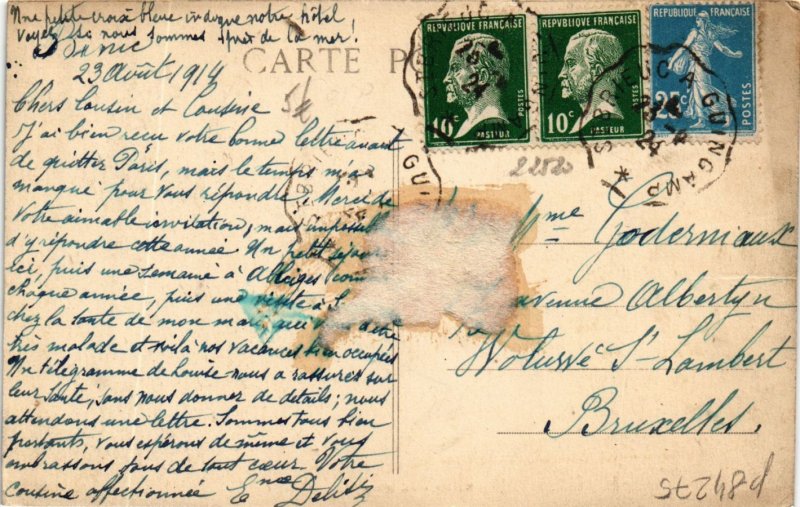 Une petite croix bleue indique notre hôtel
Voyez si nous sommes près de la mer!
23 Août 1914
CARTE P
Chers Cousin et Cousine
J'ai bien reçu votre bonne lettre avant
de quitter Paris, mais le temps m'a
manqué pour vous répondre. Merci de
votre aimable invitation, mais
d'y répondre cette année Un petit séjour
ici, puis une semaine à
chaque année, puis une visite à S
chez la tante de mon mari, qui
très malade et voilà nos vacances bien occupées
Un télégramme de Louise nous a rassurés sur
leur santé, sans nous donner de détails; nous
attendons une lettre. Sommes tous bien
portants, vous espérons de même et vous
embrassons tous de tout cœur. Votre
cousine affectionnée
REPUBLIQUE FRANÇAISE
10c
PASTEUR
REPUBLIQUE FRANÇAISE
10c
PASTEUR
REPUBLIQUE FRANÇAISE
25c
ST BRIEUC A GUINGAMP
24
22520
Mme Godernaux
avenue Albertyn
Woluwé St Lambert
Bruxelles
P84275